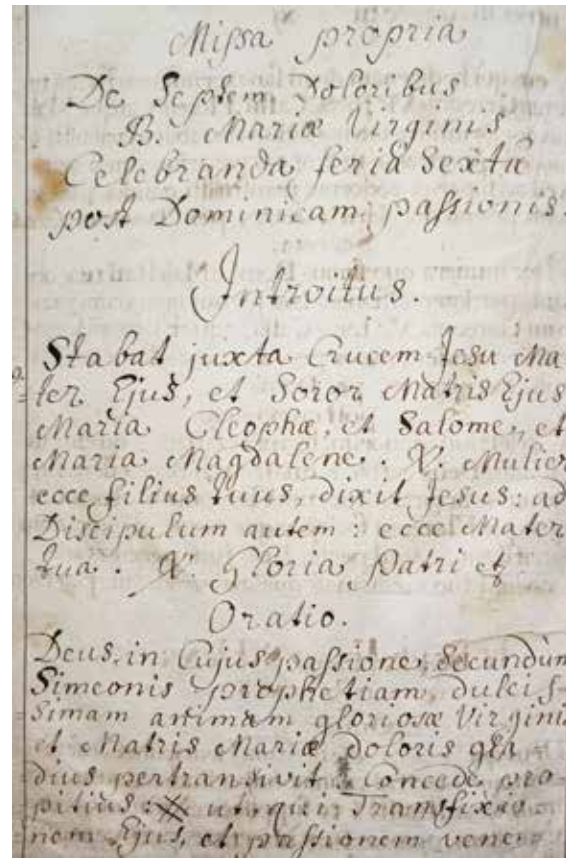 Missa propria
De Septem Doloribus
B. Mariæ Virginis
Celebranda feria Sexta
post Dominicam passionis.
Introitus.
Stabat juxta Crucem Jesu Ma
ter Ejus, et Soror Matris Ejus
Maria Cleophæ, et Salome, et
Maria Magdalene. V. Mulier
ecce filius tuus, dixit Jesus: ad
Discipulum autem: ecce Mater
tua. V. Gloria Patri et
Oratio.
Deus, in Cujus passione, Secundùm
Simeonis prophetiam, dulcis-
simam animam gloriosæ Virginis
et Matris Mariæ doloris gla
dius pertransivit Concede pro
pitius: ut qui Transfixio
nem Ejus, et passionem vene